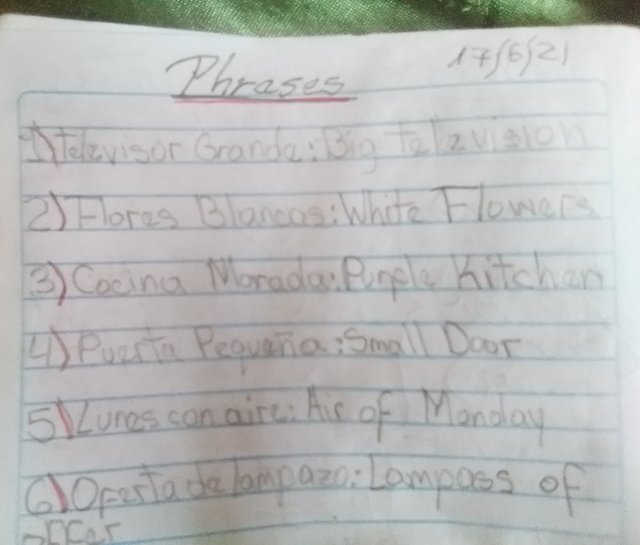 Phrases 17/6/21
1) Televisor Grande: Big Television
2) Flores Blancas: White Flowers
3) Cocina Morada: Purple Kitchen
4) Puerta Pequeña: Small Door
5) Lunes con aire: Air of Monday
6) Oferta de lampazo: Lampass of
offer